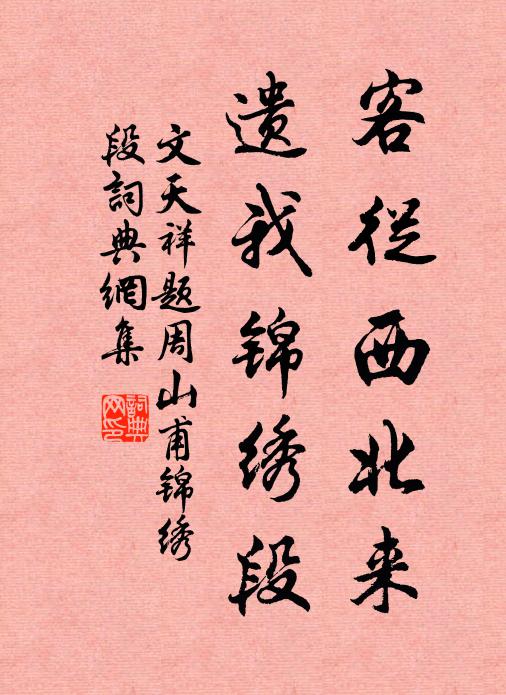 客從西北来
遗我锦绣段
文天祥题周山甫锦绣
段詞典網集
詞典网印